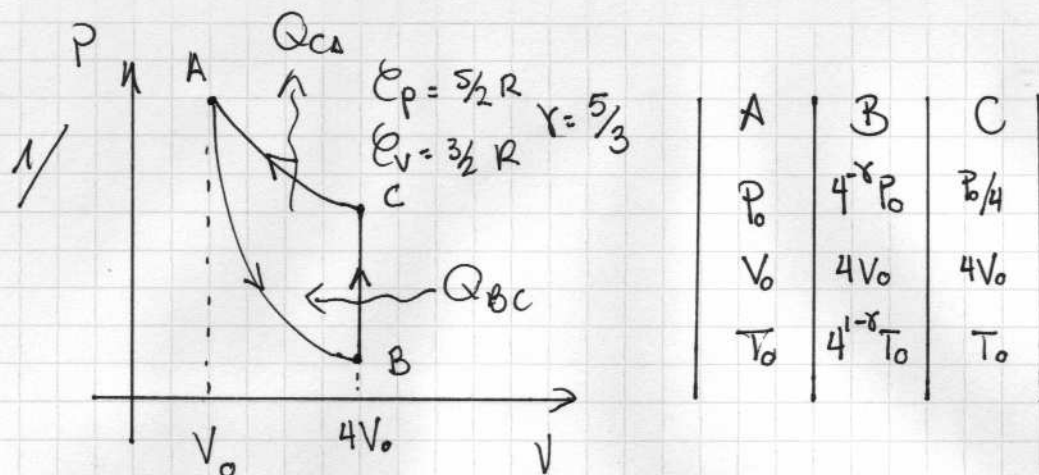 P
A
Q_CA
1/
𝒞_P = 5/2 R
γ = 5/3
𝒞_V = 3/2 R
C
Q_BC
B
V_0
4V_0
V
A B C
P_0 4^-γ P_0 P_0/4
V_0 4V_0 4V_0
T_0 4^1-γ T_0 T_0